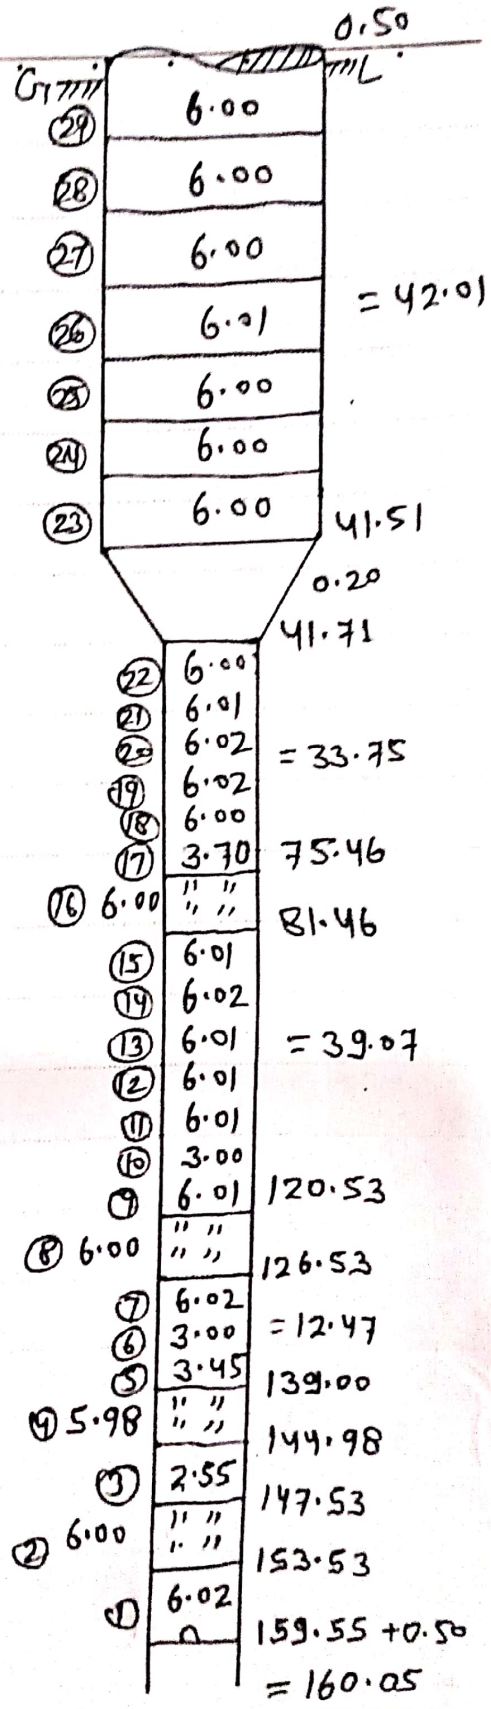 0.50
G L
29 6.00
28 6.00
27 6.00
= 42.01
26 6.01
25 6.00
24 6.00
23 6.00 41.51
0.20
41.71
22 6.00
21 6.01
20 6.02
= 33.75
19 6.02
18 6.00
17 3.70 75.46
16 6.00 " "
" "
81.46
15 6.01
14 6.02
13 6.01 = 39.07
12 6.01
11 6.01
10 3.00
9 6.01 120.53
8 6.00 " "
" "
126.53
7 6.02
6 3.00 = 12.47
5 3.45 139.00
4 5.98 " "
" "
144.98
3 2.55
147.53
2 6.00 " "
" "
153.53
1 6.02
159.55 +0.50
= 160.05